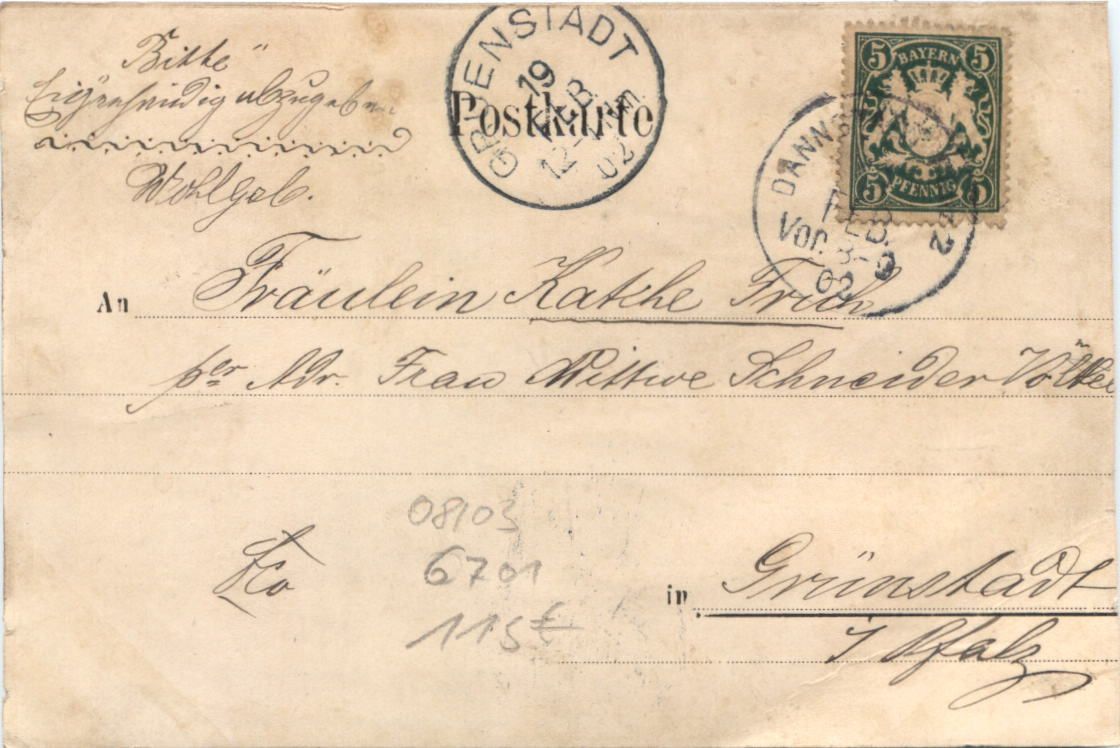 Bitte
Eigenhändig abzugeben
Wohlgeb.
GRUENSTADT
19
FEB.
12-1 Nm.
02
Postkarte
5 BAYERN 5
5 PFENNIG 5
DANNST
FEB.
Vor. 8-9
02
An Fräulein Kathe
per Adr. Frau Wittwe Schneider Völker
08/03
6701
115€
in Grünstadt
i/Pfalz